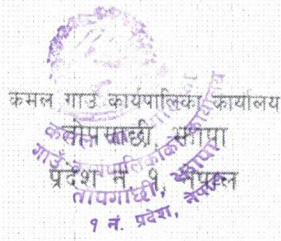 कमल गाउँ कार्यपालिका कार्यालय
तोपगाछी, झापा
प्रदेश नं १, नेपाल
गाउँ कार्यपालिकाको कार्यालय
तोपगाछी, झापा
१ नं. प्रदेश, नेपाल